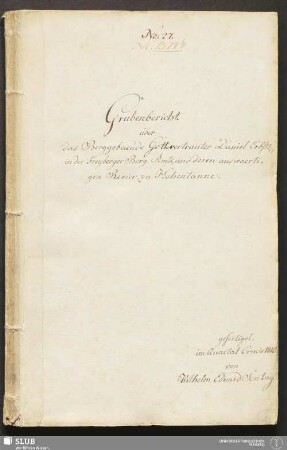 No: 27.
Grubenbericht
über
das Berggebäude Gottvertrauter Daniel Erbst.
in der Freyberger Berg Amts und deren auswaerti-
gen Revier zu Hohentanne.
gefertiget
im Quartal Crucis
von
Wilhelm Eduard
SLUB
Wir führen Wissen.